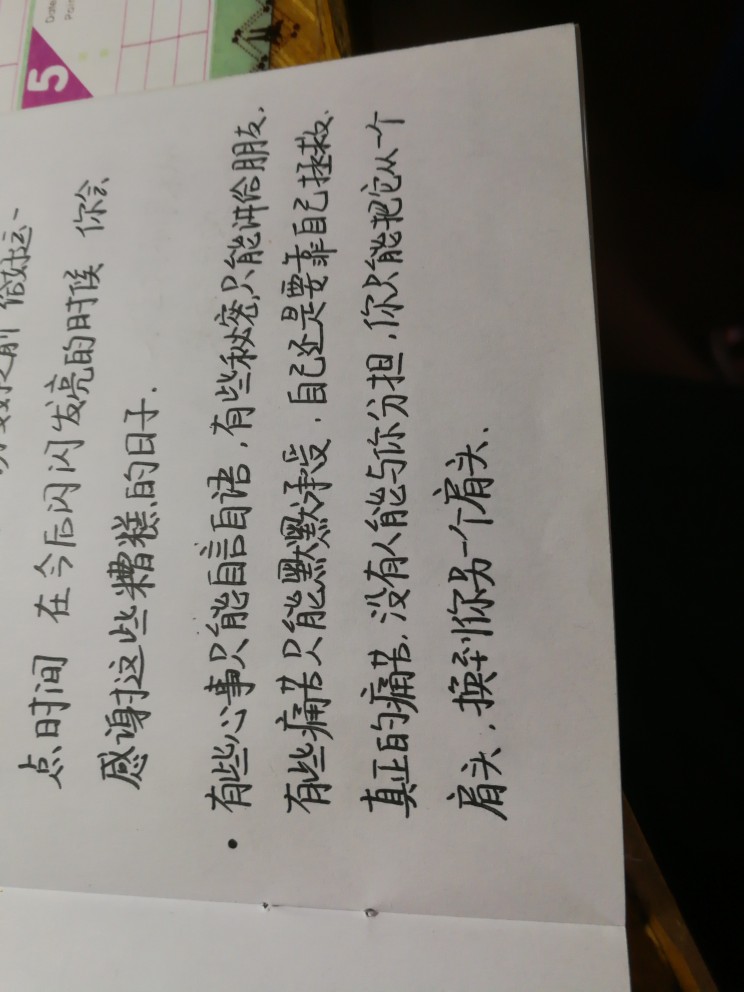 给好运一
点时间 在今后闪闪发亮的时候 你会
感谢这些糟糕的日子.
• 有些心事只能自言自语,有些秘密只能讲给朋友,
有些痛苦只能默默承受,自己还是要靠自己拯救.
真正的痛苦,没有人能与你分担,你只能把它从一个
肩头,换到你另一个肩头.
5
Date